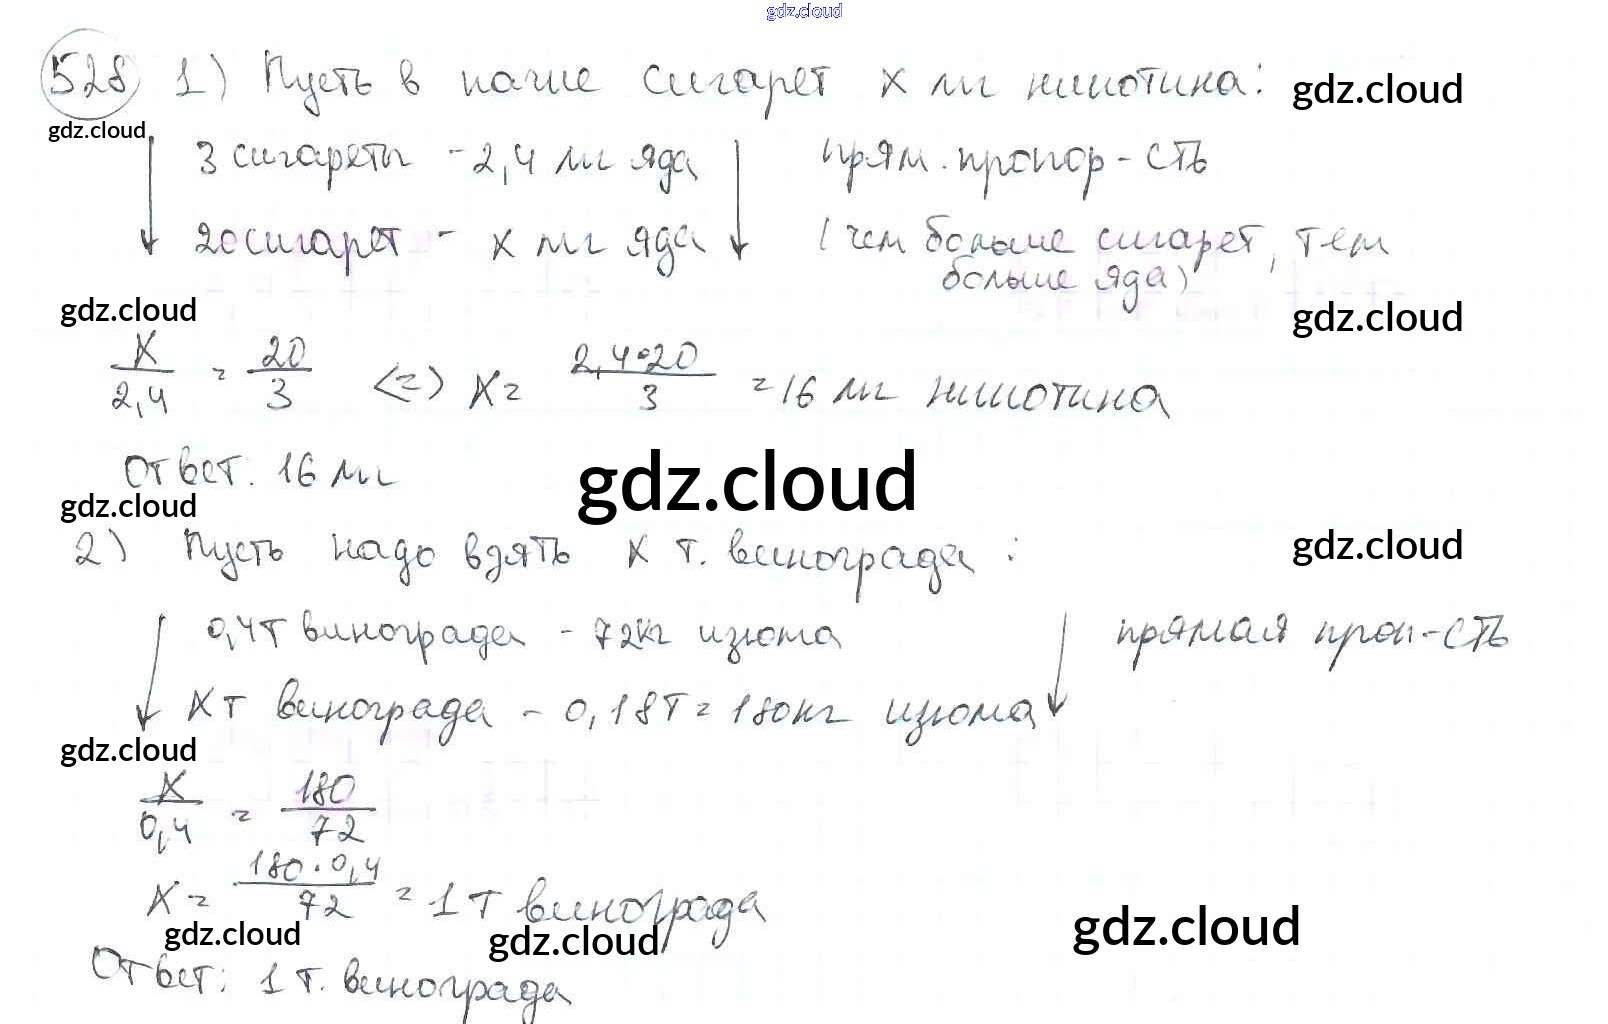 gdz.cloud
528 1) Пусть в пачке сигарет x мг никотина: gdz.cloud
gdz.cloud
3 сигареты - 2,4 мг яда прям. пропор-сть
20 сигарет - x мг яда (чем больше сигарет, тем
больше яда)
gdz.cloud gdz.cloud
x/2,4 = 20/3 <=> x = 2,4•20/3 = 16 мг никотина
Ответ: 16 мг gdz.cloud
gdz.cloud
2) Пусть надо взять x т. винограда: gdz.cloud
0,4т винограда - 72кг изюма прямая проп-сть
xт винограда - 0,18т = 180кг изюма
gdz.cloud
x/0,4 = 180/72
x = 180·0,4/72 = 1 т винограда
gdz.cloud gdz.cloud gdz.cloud
Ответ: 1 т. винограда